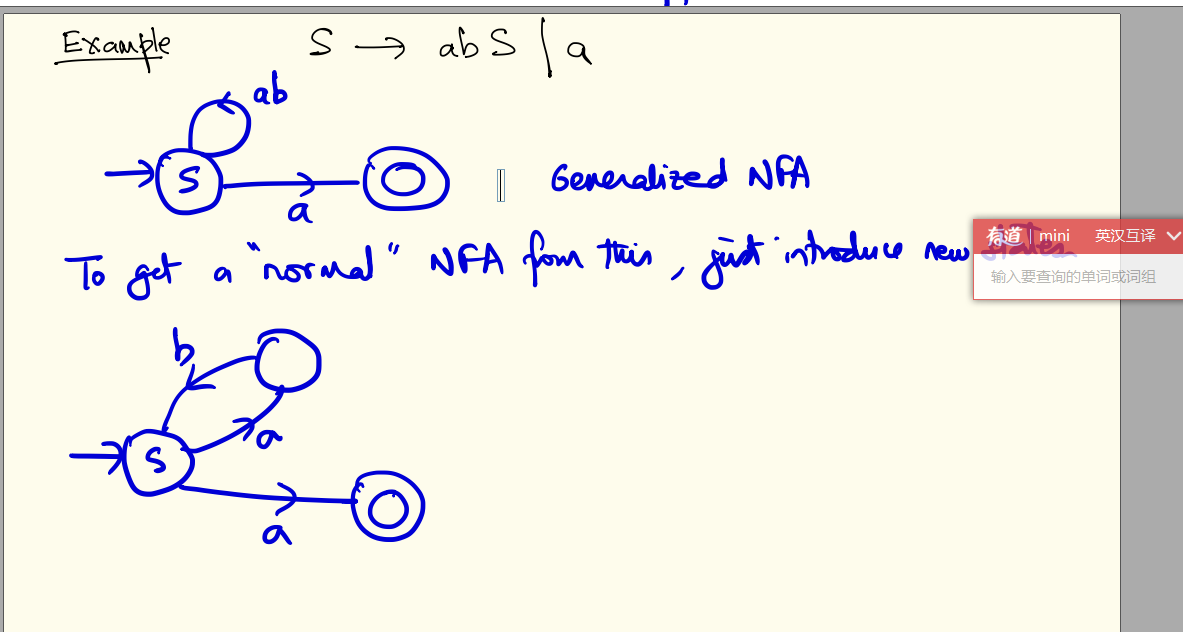 Example S → abS | a
ab
S
a
Generalized NFA
To get a "normal" NFA from this, just introduce new states
有道 mini 英汉互译
输入要查询的单词或词组
b
a
S
a